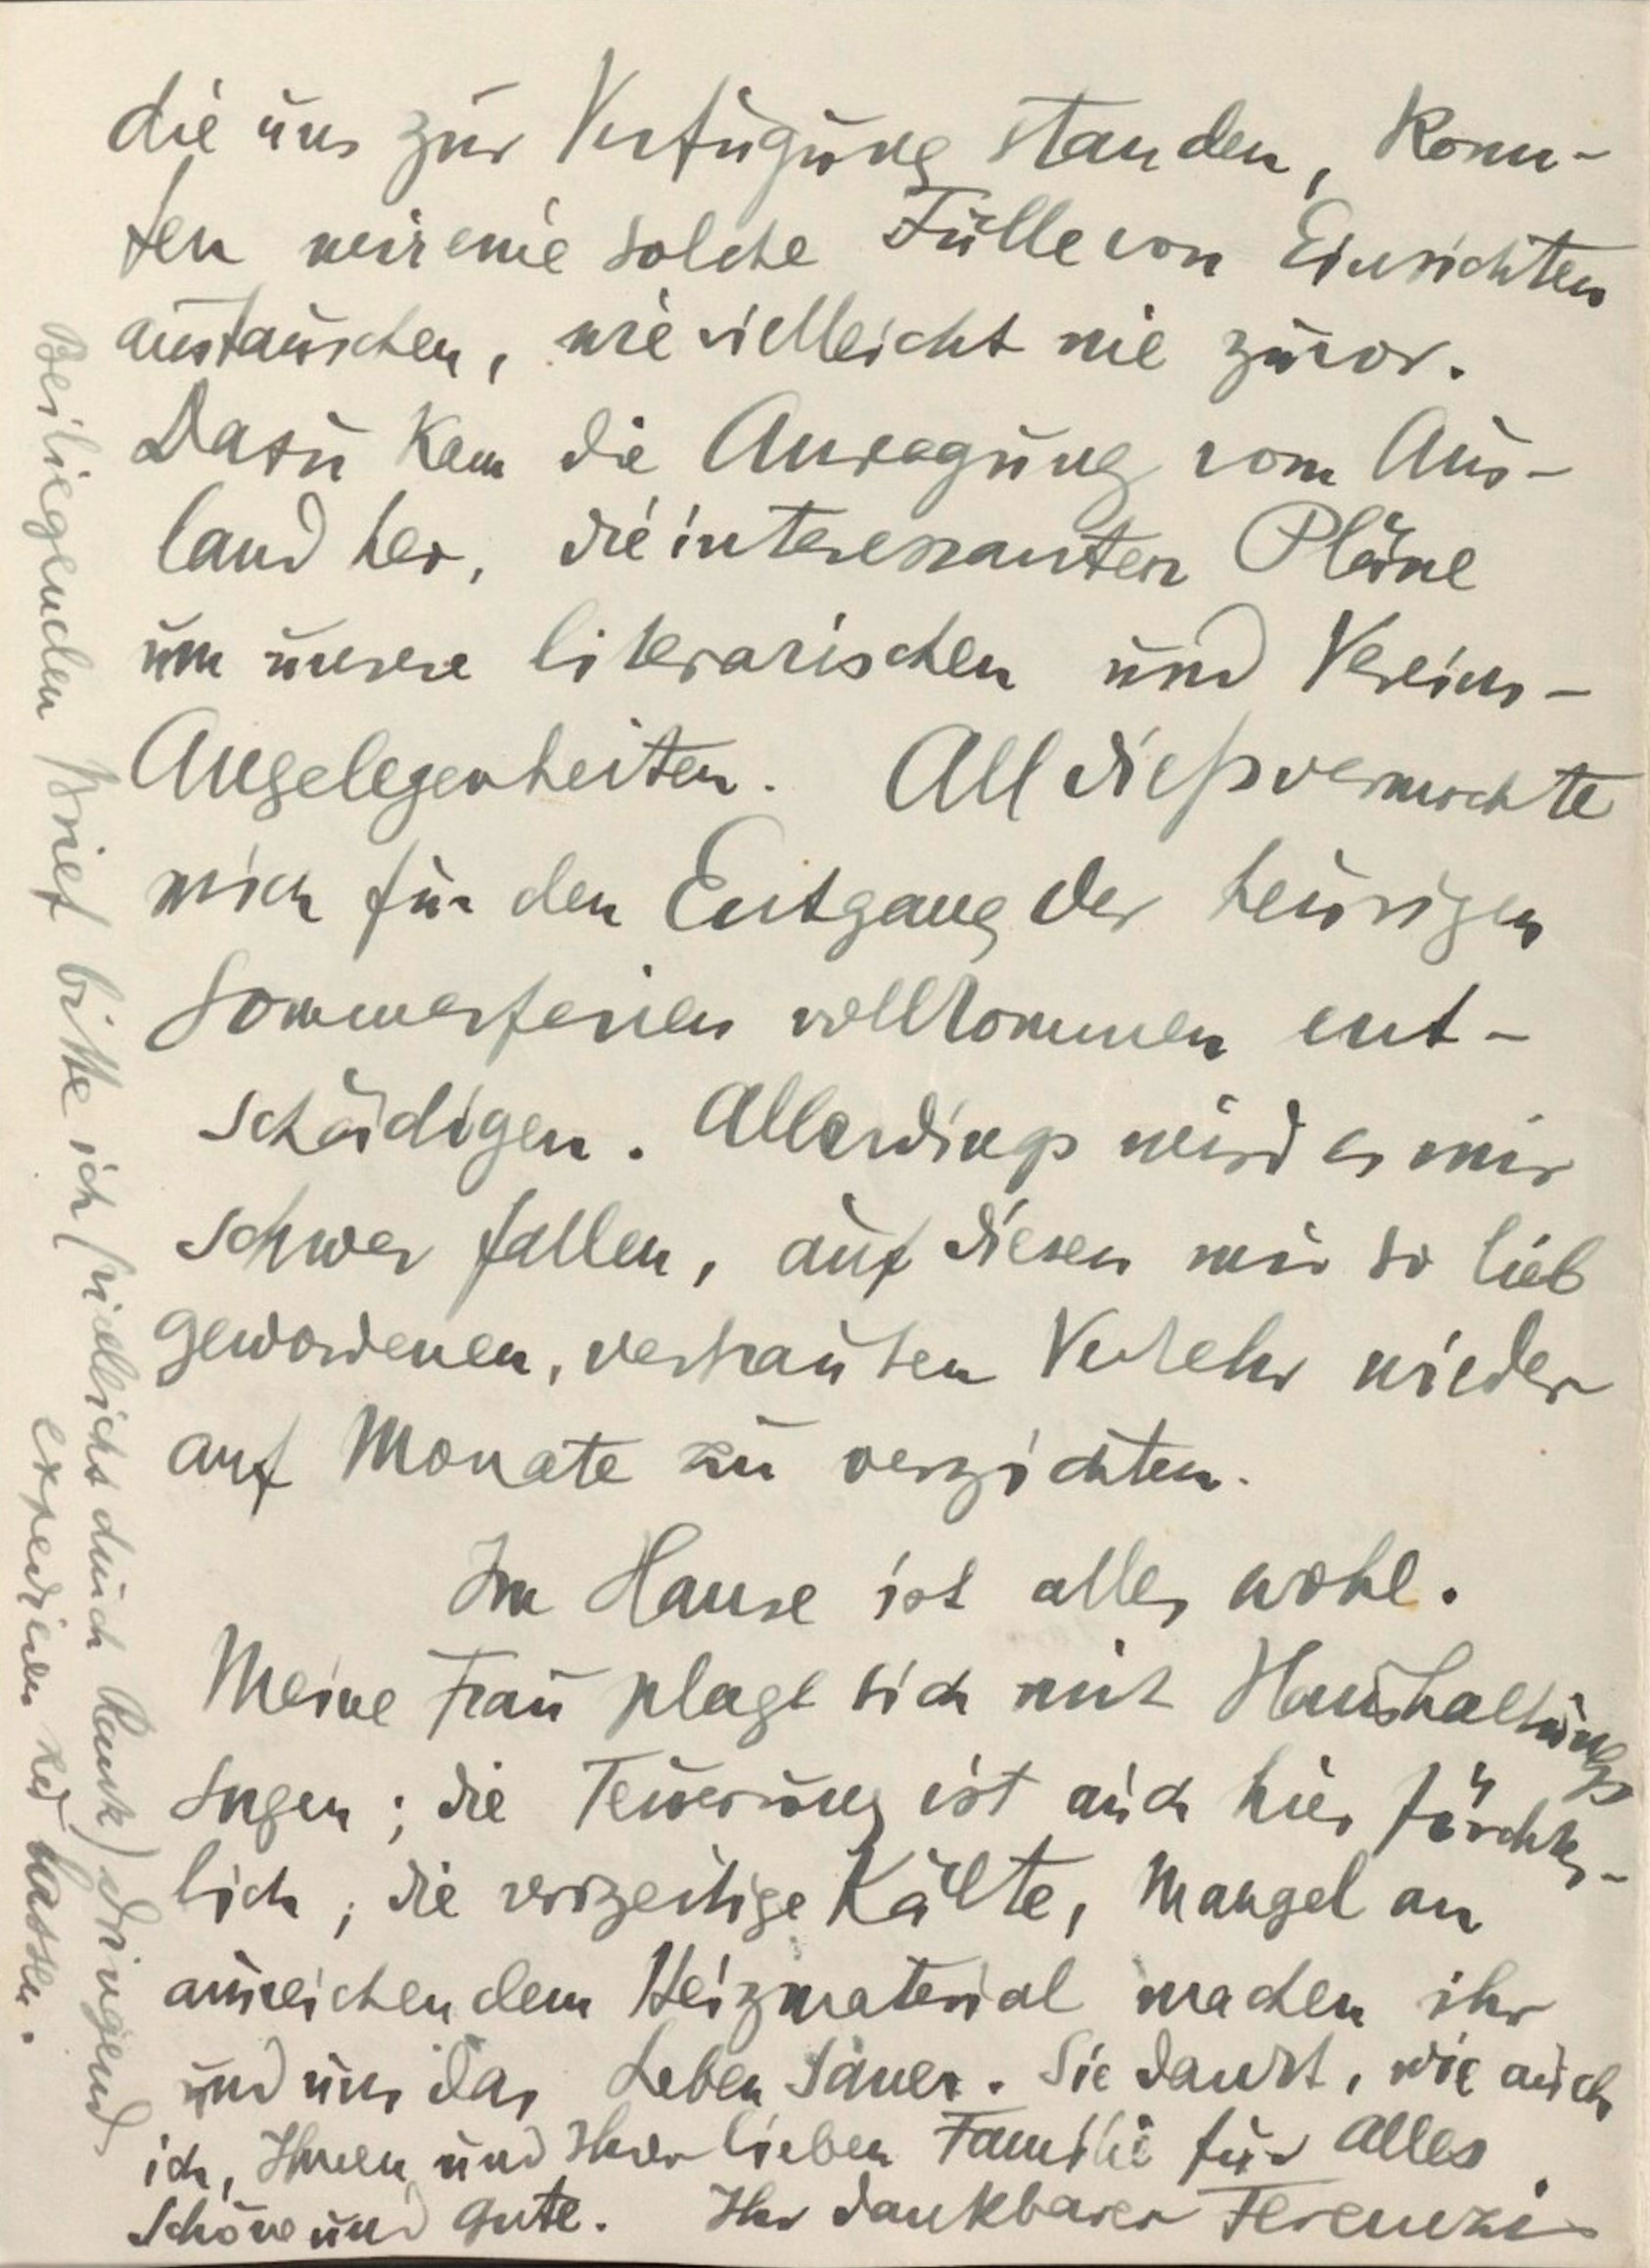 die uns zur Verfügung standen, konn-
ten wir eine solche Fülle von Einsichten
austauschen, wie vielleicht nie zuvor.
Dazu kam die Anregung vom Aus-
land her, die interessanten Pläne
um unsere literarischen und Vereins-
Angelegenheiten. All dieß vermochte
mich für den Entgang der heurigen
Sommerferien vollkommen ent-
schädigen. Allerdings wird es mir
schwer fallen, auf diesen mir so lieb
gewordenen, vertrauten Verkehr wieder
auf Monate zu verzichten.
Im Hause ist alles wohl.
Meine Frau plagt sich mit Haushaltungs
sorgen; die Teuerung ist auch hier fürchter-
lich; die vorzeitige Kälte, Mangel an
ausreichendem Heizmaterial machen ihr
und uns das Leben sauer. Sie dankt, wie auch
ich, Ihnen und Ihrer lieben Familie für alles
Schöne und Gute. Ihr dankbarer Ferenczi
Beiliegenden Brief bitte ich (vielleicht durch Rank) dringend
expedieren zu lassen.